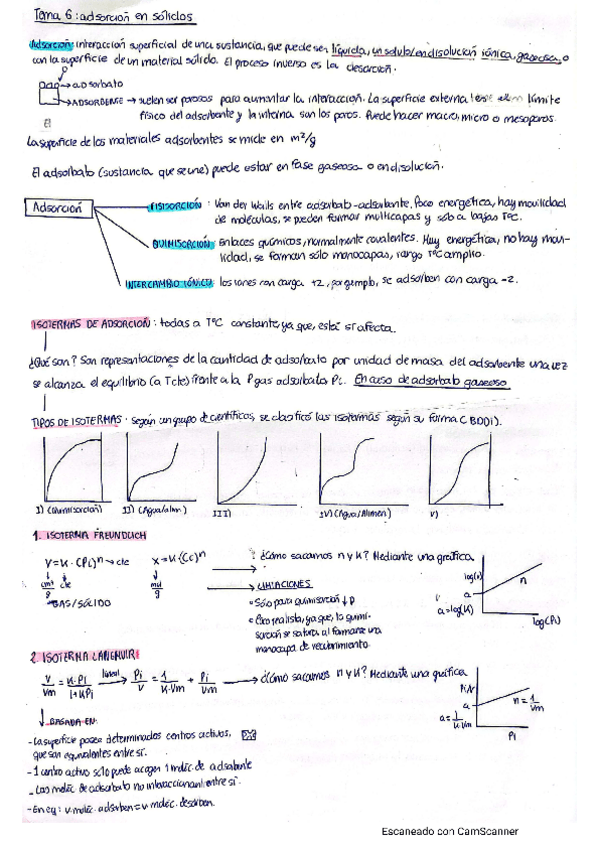 Tema 6: adsorción en sólidos
Adsorción: interacción superficial de una sustancia, que puede ser líquida, un soluto en disolución iónica, gaseosa, o
con la superficie de un material sólido. El proceso inverso es la desorción.
adsorbato
ADSORBENTE → suelen ser porosos para aumentar la interacción. La superficie externa tiene como límite
físico del adsorbente y la interna son los poros. Puede hacer macro, micro o mesoporos.
El
La superficie de los materiales adsorbentes se mide en m²/g
El adsorbato (sustancia que se une) puede estar en fase gaseosa o en disolución.
Adsorción
FISISORCIÓN: Van der Walls entre adsorbato-adsorbente. Poco energética, hay movilidad
de moléculas, se pueden formar multicapas y sólo a bajas TºC.
QUIMISORCIÓN: Enlaces químicos, normalmente covalentes. Muy energética, no hay movi-
lidad, se forman sólo monocapas, rango TºC amplio.
INTERCAMBIO IÓNICO: los iones con carga +2, por ejemplo, se adsorben con carga -2.
ISOTERMAS DE ADSORCIÓN: todas a TºC constante, ya que, esta sí afecta.
¿Qué son? Son representaciones de la cantidad de adsorbato por unidad de masa del adsorbente una vez
se alcanza el equilibrio (a Tcte) frente a la P gas adsorbato, Pi. En caso de adsorbato gaseoso
TIPOS DE ISOTERMAS: según un grupo de científicos, se clasificó las isotermas según su forma (BDDT).
I) (Quimisorción)
II) (Agua/alim)
III)
IV) (Agua/Alimen)
V)
1. ISOTERMA FREUNDLICH
V=K·(Pi)ⁿ → cte
X=K·(Cc)ⁿ
cm³/g
cte
GAS/SÓLIDO
mg/g
¿Cómo sacamos n y K? Mediante una gráfica
LIMITACIONES
Sólo para quimisorción ↓ P
Poco realista, ya que, la quimi-
sorción se satura al formarse una
monocapa de recubrimiento.
a
a=log(K)
n
log(Pi)
2. ISOTERMA LANGMUIR
V/Vm = K·Pi/1+KPi → lineal Pi/V = 1/K·Vm + Pi/Vm → ¿Cómo sacamos n y K? Mediante una gráfica
Pi/V
a
a=1/K·Vm
n=1/Vm
Pi
BASADA EN:
- La superficie posee determinados centros activos,
que son equivalentes entre sí.
- 1 centro activo sólo puede acoger 1 moléc. de adsorbente
- Las moléc de adsorbato no interaccionan entre sí.
- En eq: v. moléc. adsorben = v. moléc. desorben.
Escaneado con CamScanner